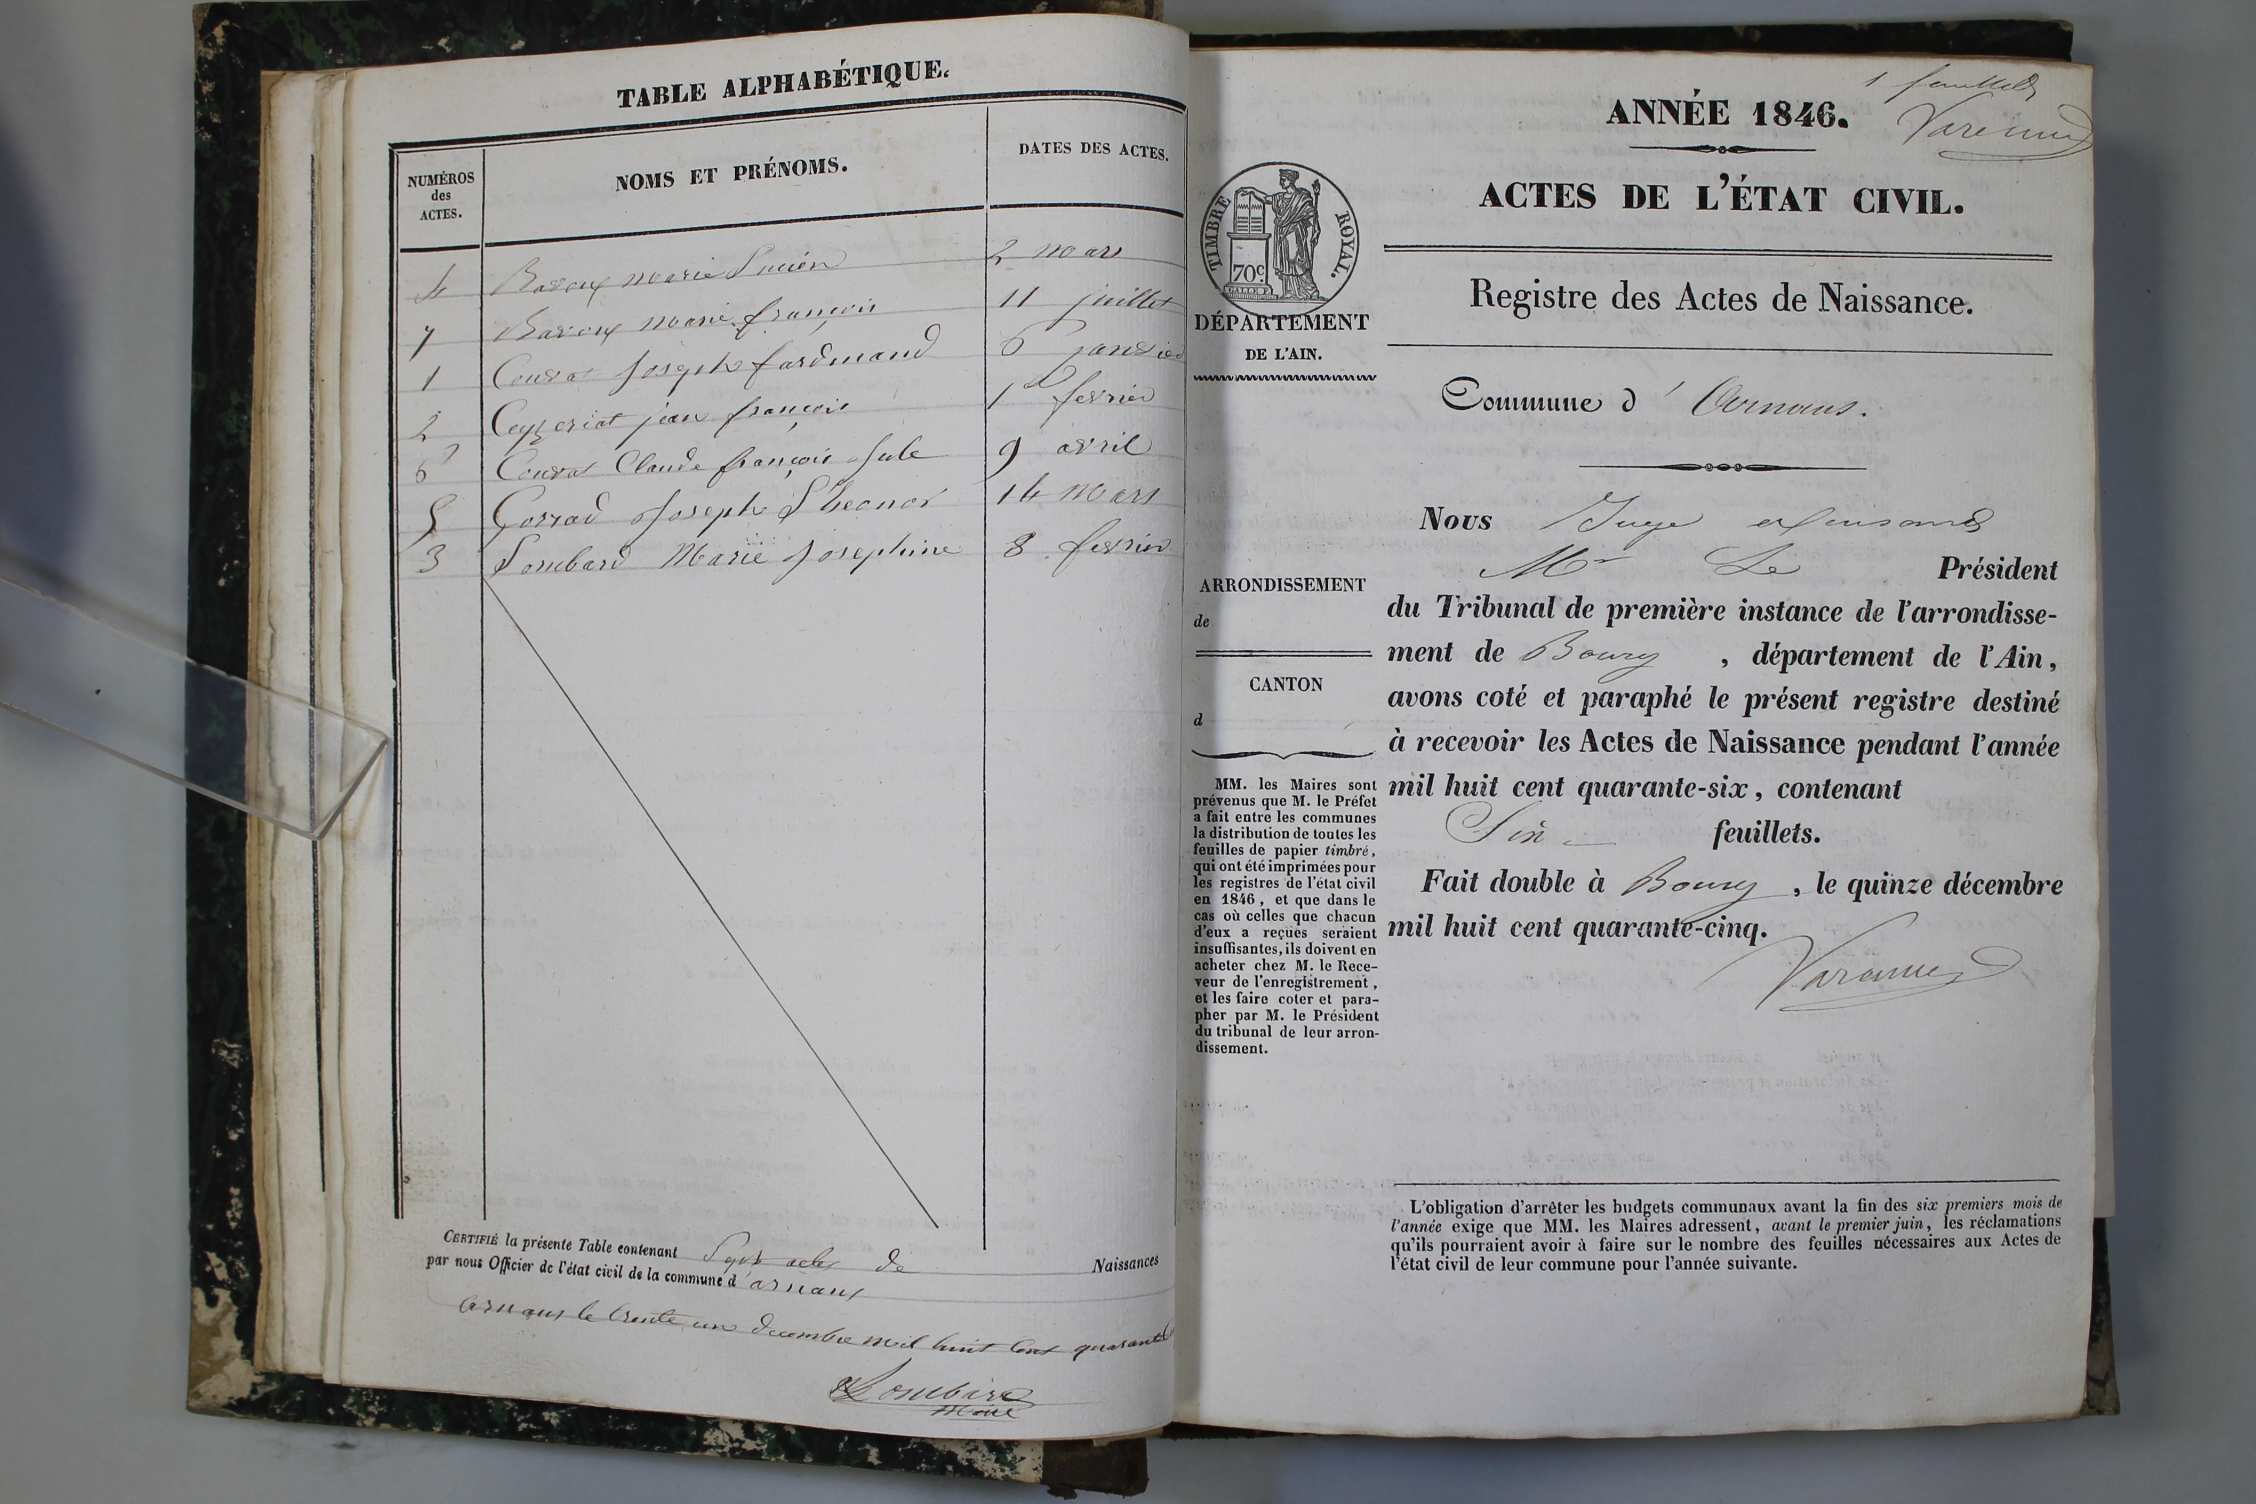 TABLE ALPHABÉTIQUE.
NUMÉROS
des
ACTES.
NOMS ET PRÉNOMS.
DATES DES ACTES.
4 Baroux Marie Lucien 2 mars
7 Baroux Marie françois 11 juillet
1 Couvat Joseph fardinand 6 janvier
2 Ceyzeriat jean françois 1er fevrier
6 Couvat Claude françois Jule 9 avril
5 Gorrad Joseph 14 Mars
3 Lombard Marie Josephine 8 fevrier
CERTIFIÉ la présente Table contenant Sept actes de Naissances
par nous Officier de l'état civil de la commune d'arnans
arnans le trente un decembre mil huit cent quarante
Lombard
Maire
1er feuillet
Varenne
ANNÉE 1846.
ACTES DE L'ÉTAT CIVIL.
TIMBRE ROYAL.
70c
Registre des Actes de Naissance.
DÉPARTEMENT
DE L'AIN.
Commune d' Arnans.
Nous Juge
Mr Le Président
du Tribunal de première instance de l'arrondisse-
ment de Bourg, département de l'Ain,
avons coté et paraphé le présent registre destiné
à recevoir les Actes de Naissance pendant l'année
mil huit cent quarante-six, contenant
Six feuillets.
Fait double à Bourg, le quinze décembre
mil huit cent quarante-cinq.
Varenne
ARRONDISSEMENT
de
CANTON
d
MM. les Maires sont
prévenus que M. le Préfet
a fait entre les communes
la distribution de toutes les
feuilles de papier timbré,
qui ont été imprimées pour
les registres de l'état civil
en 1846, et que dans le
cas où celles que chacun
d'eux a reçues seraient
insuffisantes, ils doivent en
acheter chez M. le Rece-
veur de l'enregistrement,
et les faire coter et para-
pher par M. le Président
du tribunal de leur arron-
dissement.
L'obligation d'arrêter les budgets communaux avant la fin des six premiers mois de
l'année exige que MM. les Maires adressent, avant le premier juin, les réclamations
qu'ils pourraient avoir à faire sur le nombre des feuilles nécessaires aux Actes de
l'état civil de leur commune pour l'année suivante.